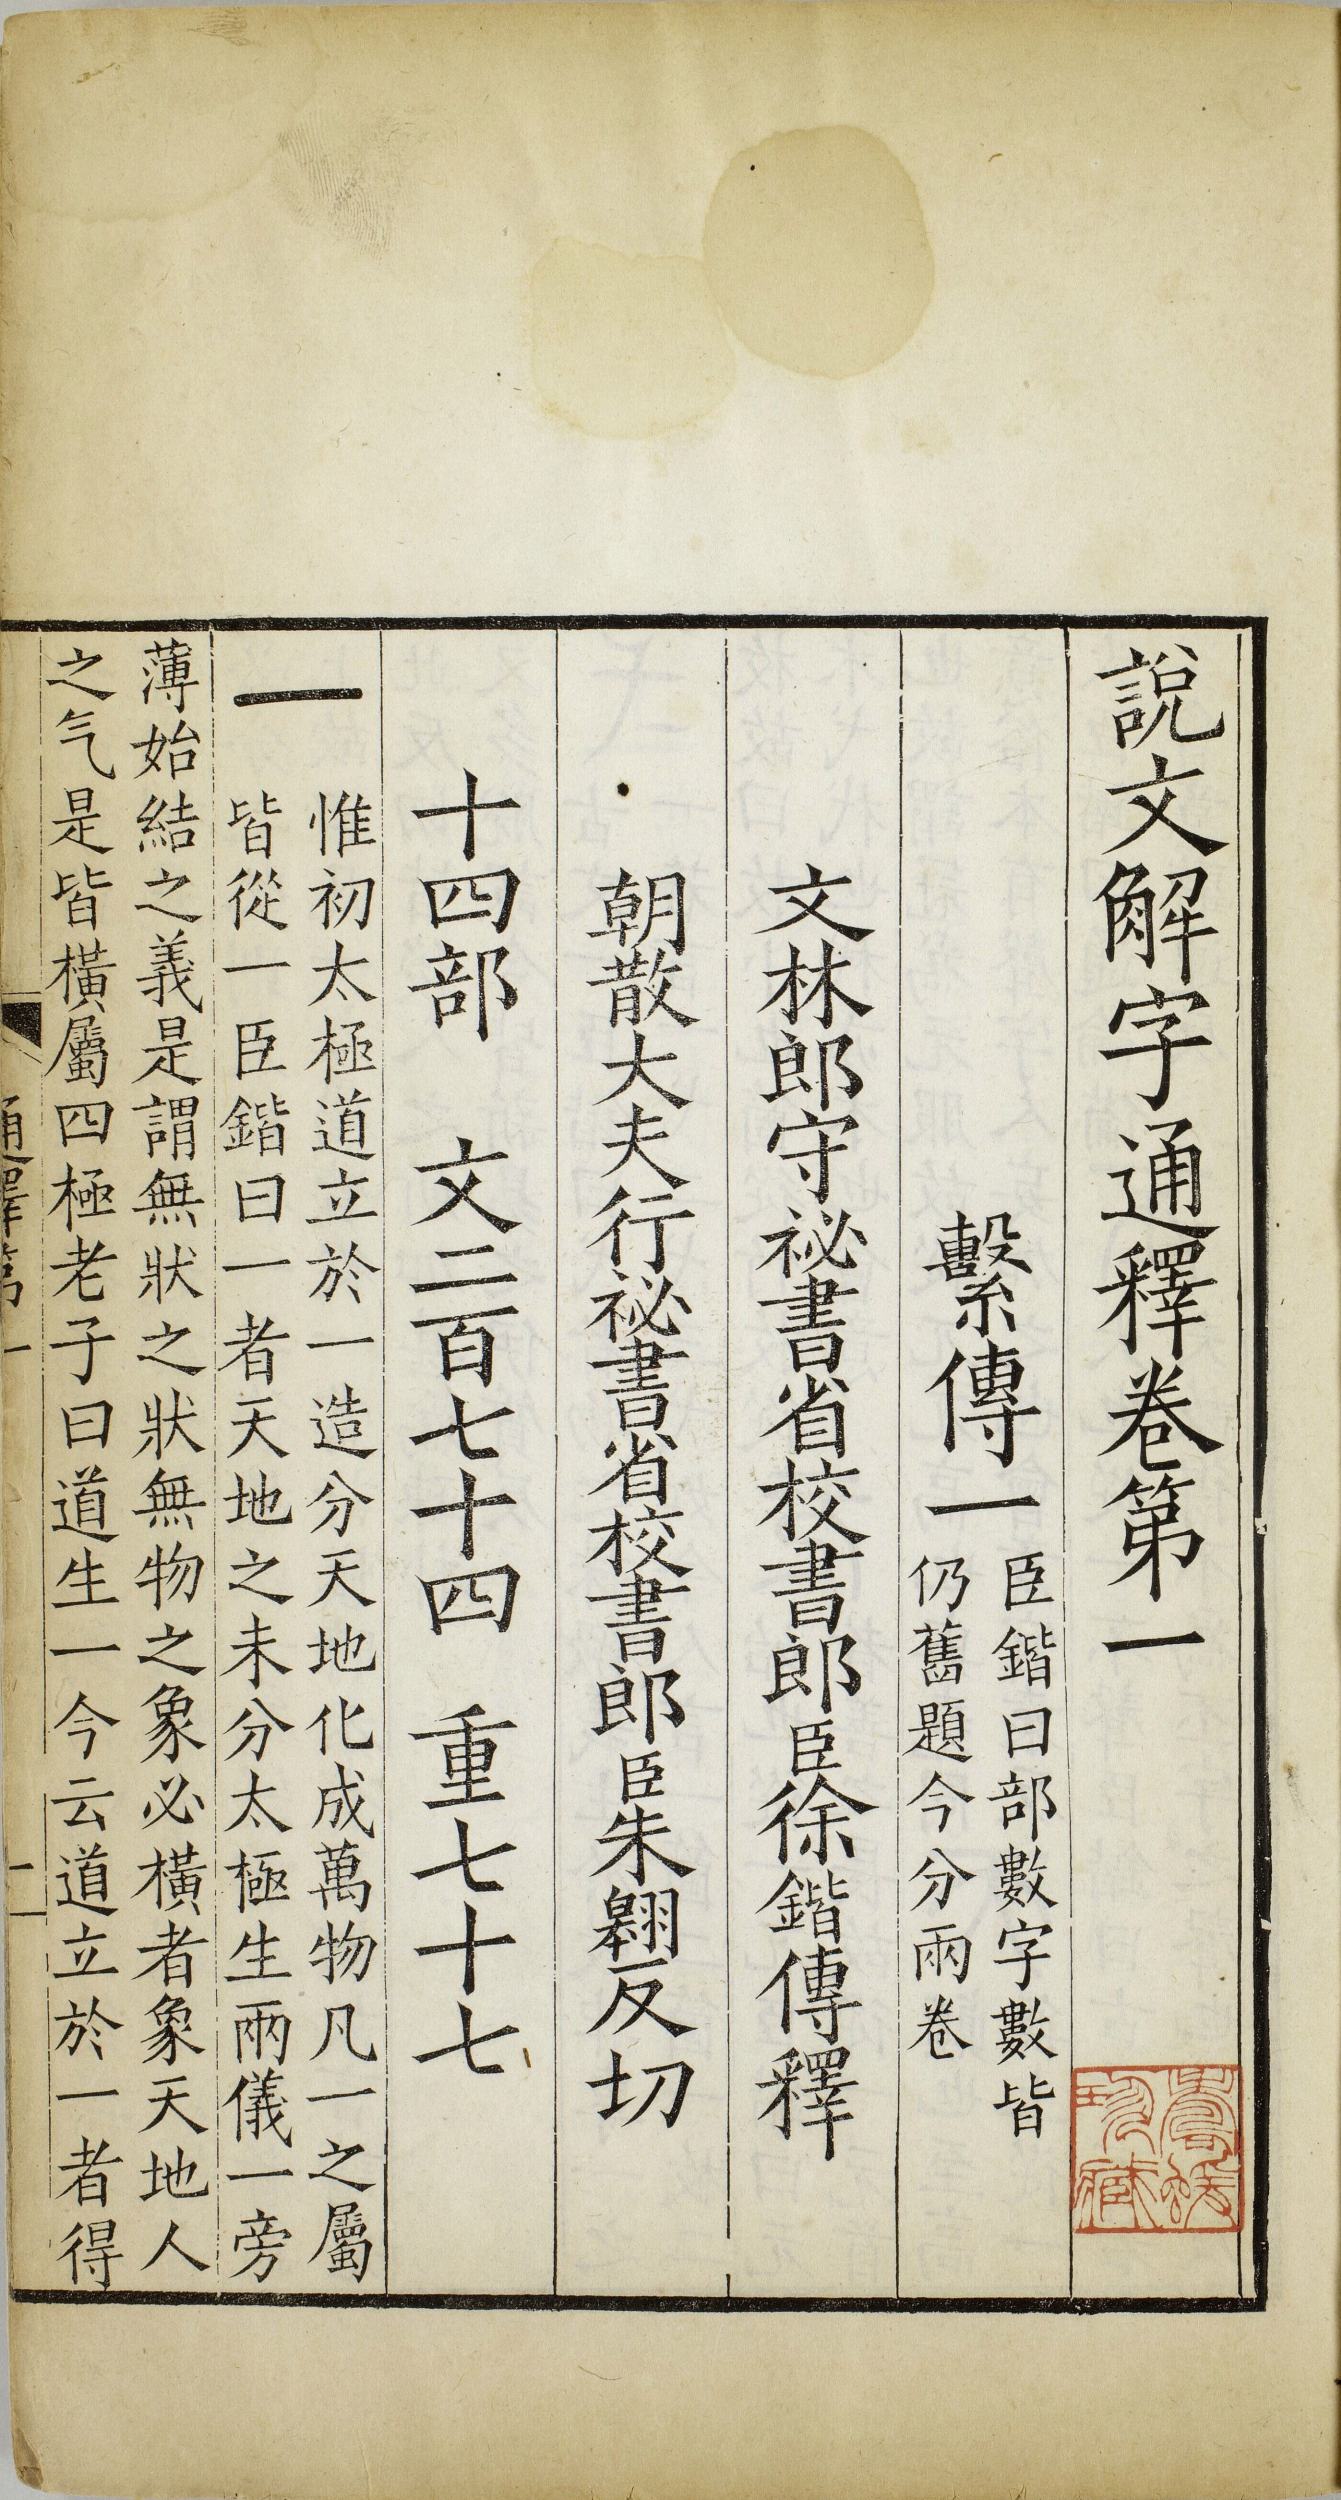 說文解字通釋卷第一
繫傳一
臣鍇曰部數字數皆
仍舊題今分兩卷
文林郎守祕書省校書郎臣徐鍇傳釋
朝散大夫行祕書省校書郎臣朱翱反切
十四部 文二百七十四 重七十七
一
惟初太極道立於一造分天地化成萬物凡一之屬
皆從一臣鍇曰一者天地之未分太極生兩儀一旁
薄始結之義是謂無狀之狀無物之象必橫者象天地人
之气是皆橫屬四極老子曰道生一今云道立於一者得
通釋第一